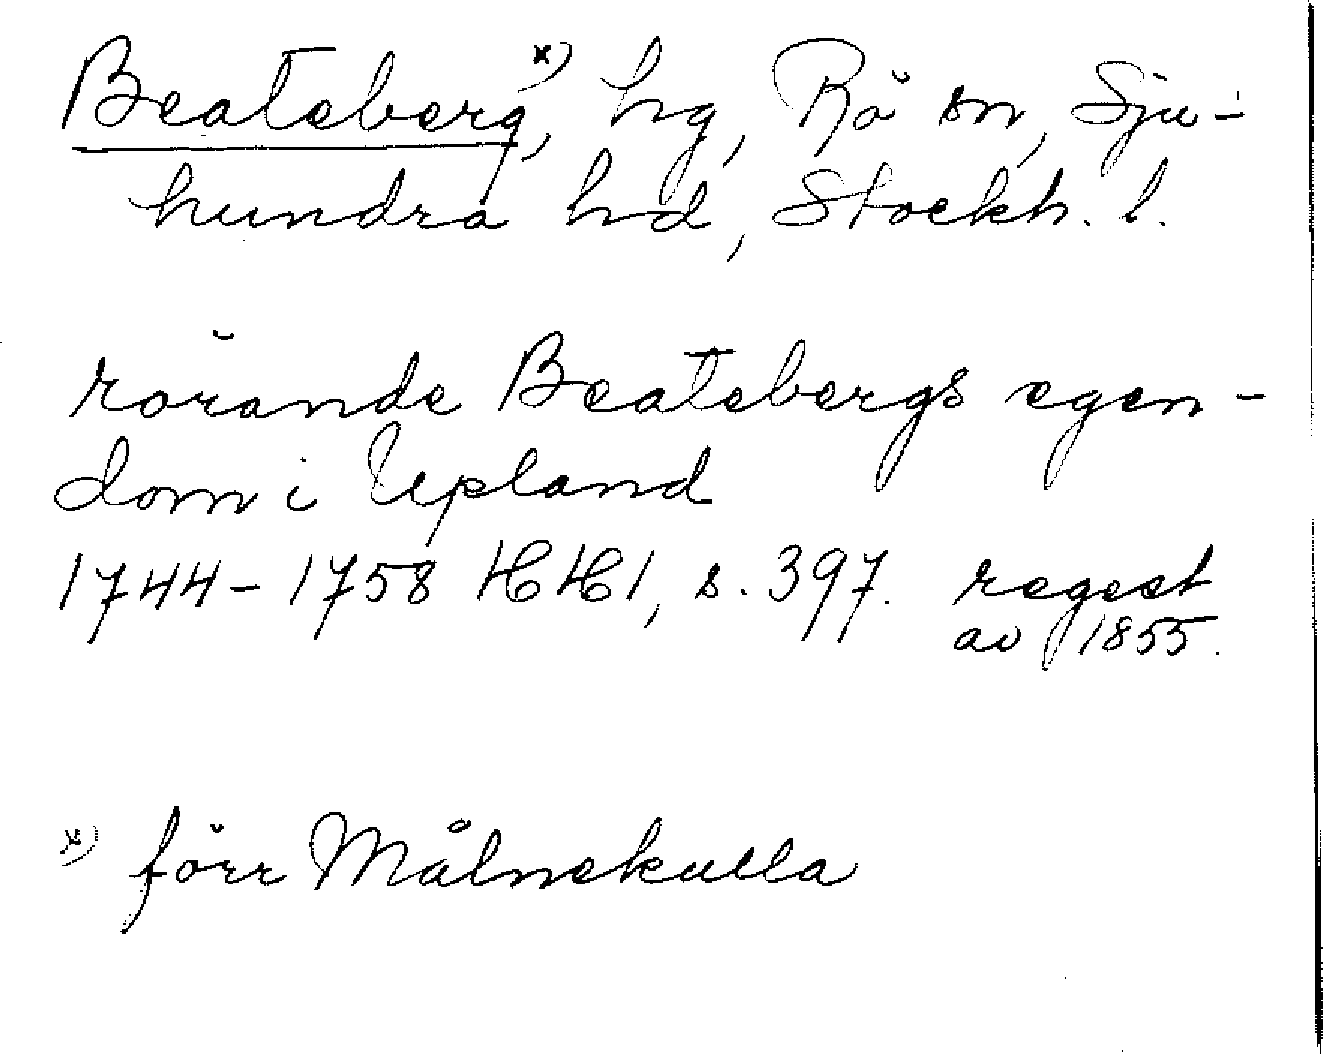 Beateberg,ˣ⁾ hg, Rö sn, Sju-
hundra hd, Stockh. l.
rörande Beatebergs egen-
dom i Upland
1744-1758 HH1, s. 397. regest
av 1855.
x) förr Målnekulla